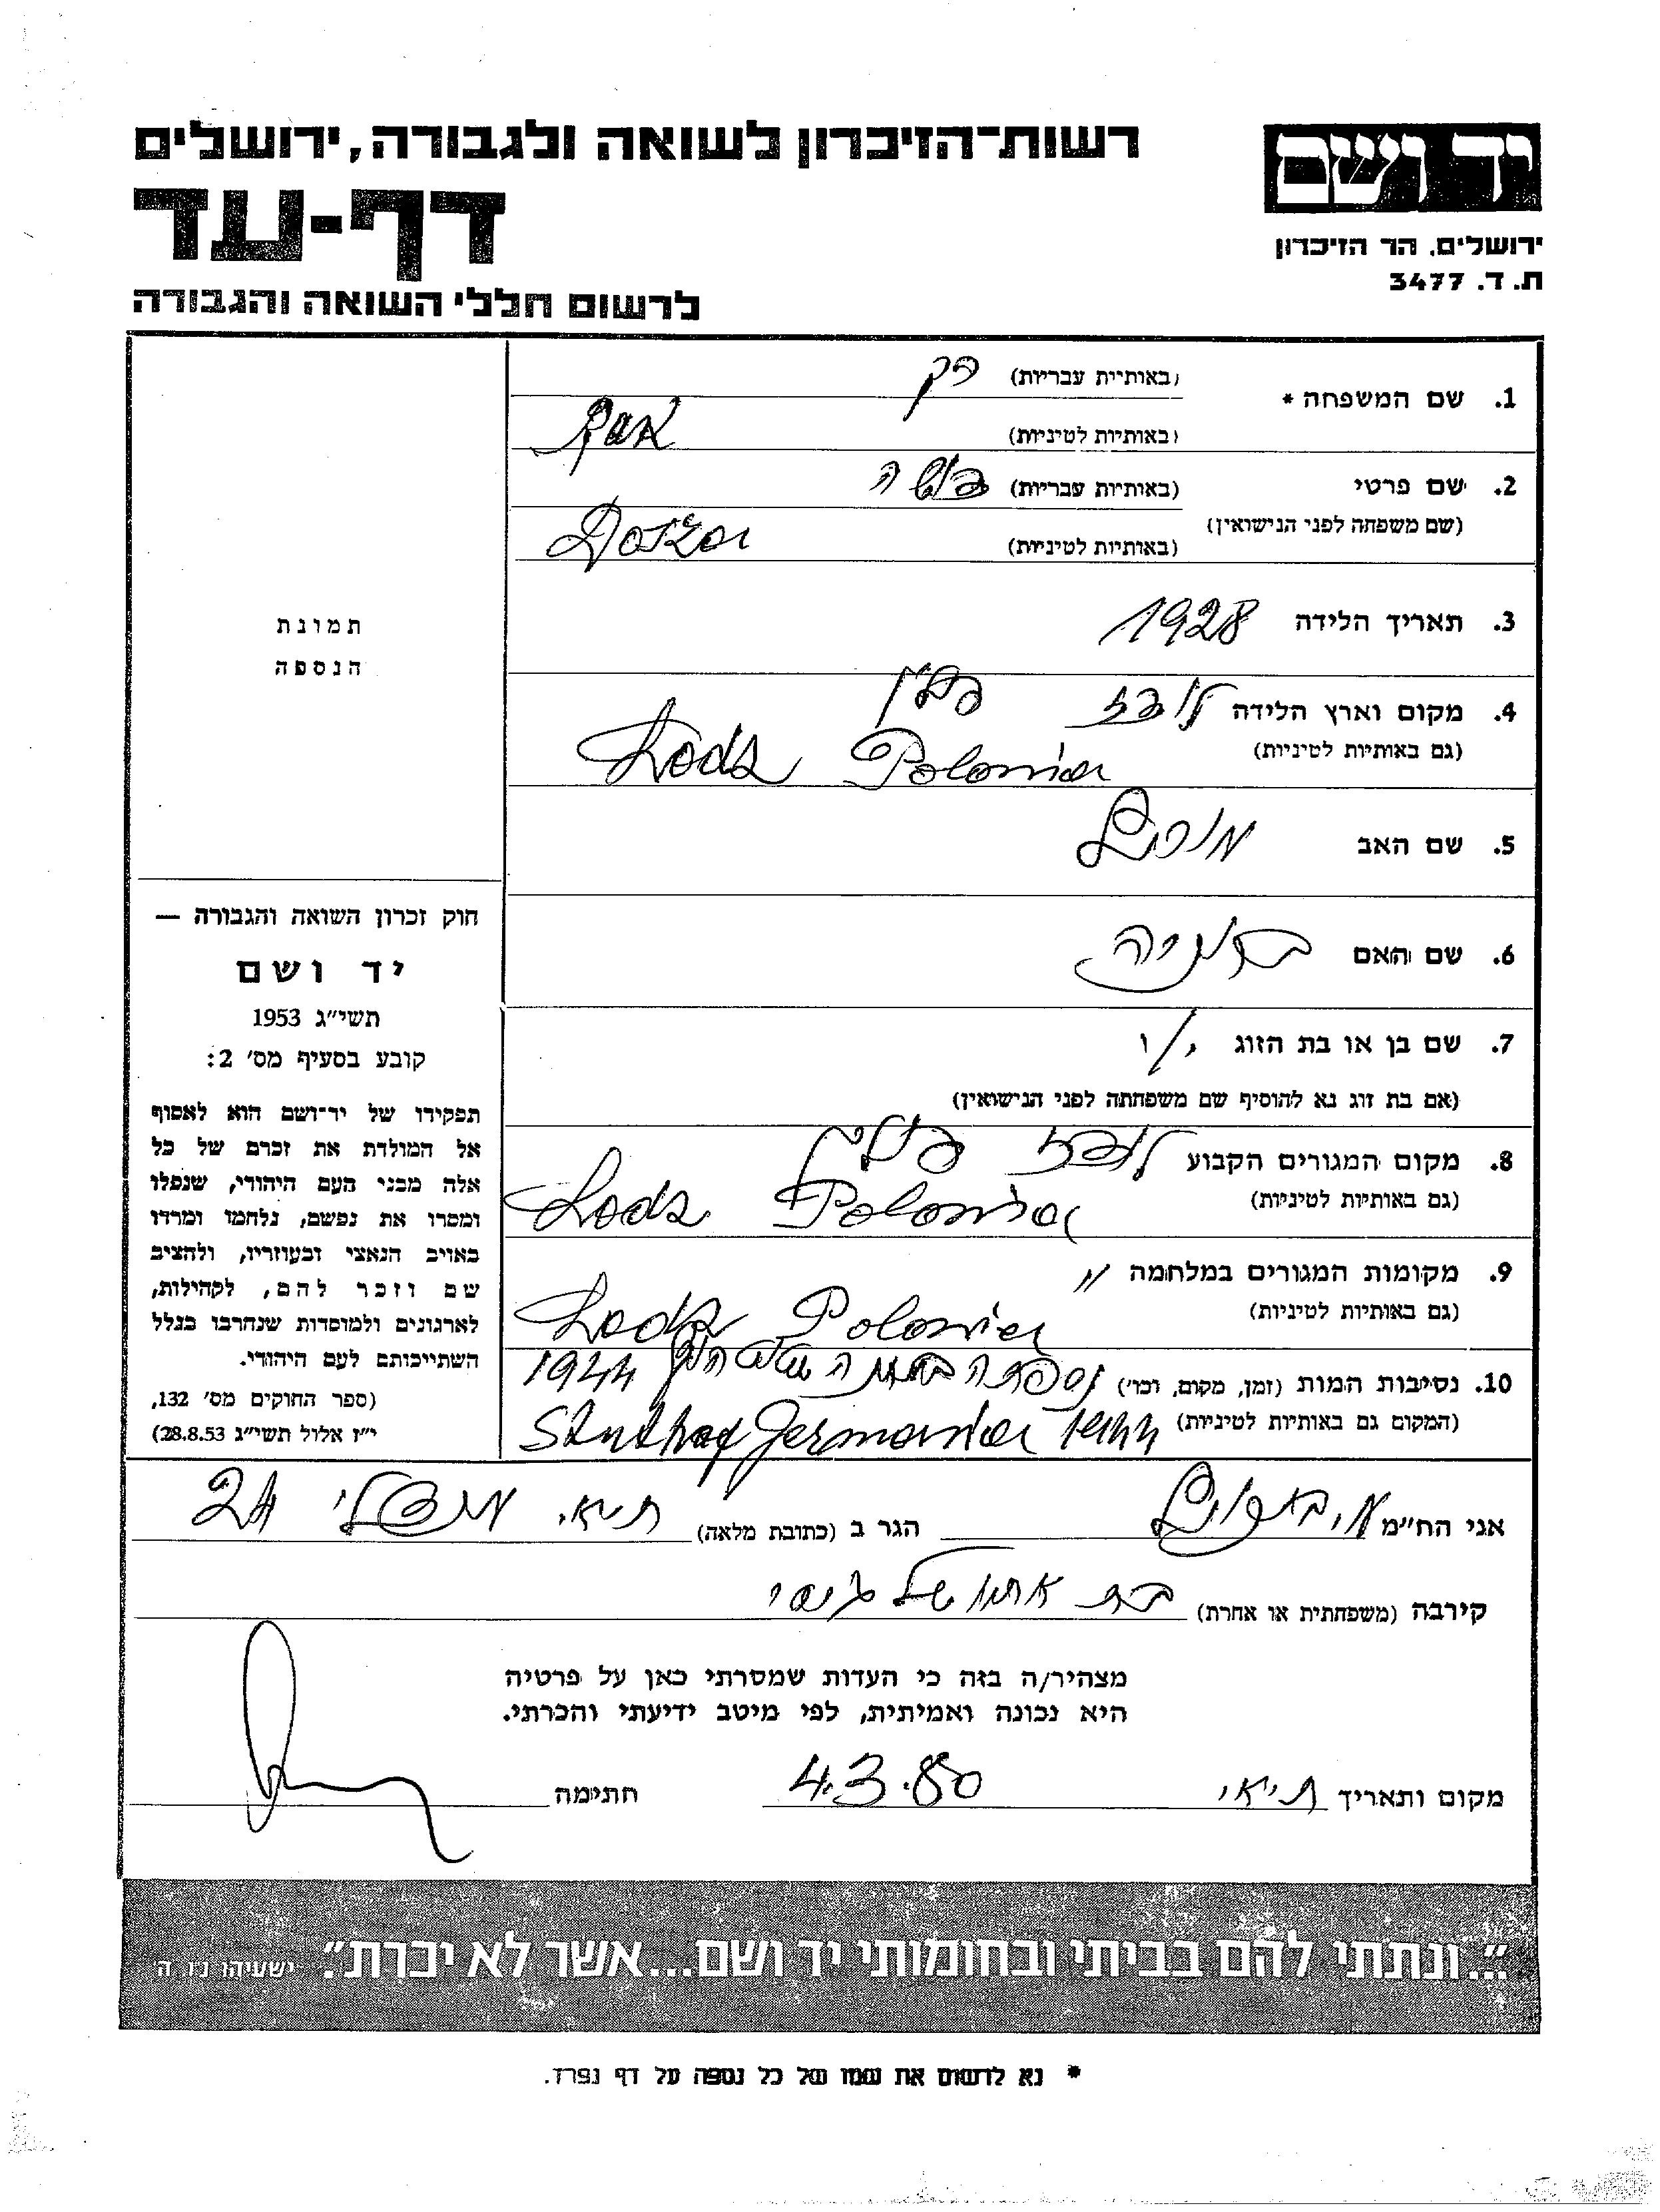 רשות־הזיכרון לשואה ולגבורה, ירושלים
יד ושם
דף-עד
ירושלים, הר הזיכרון
ת. ד. 3477
לרשום חללי השואה והגבורה
1. שם המשפחה * (באותיות עבריות) רק
(באותיות לטיניות) Rak
2. שם פרטי (באותיות עבריות)
(שם משפחה לפני הנישואין) (באותיות לטיניות)
3. תאריך הלידה 1928
4. מקום וארץ הלידה לודז פולין
(גם באותיות לטיניות) Lodz Polonia
5. שם האב
6. שם האם
7. שם בן או בת הזוג
(אם בת זוג נא להוסיף שם משפחתה לפני הנישואין)
8. מקום המגורים הקבוע לודז פולין
(גם באותיות לטיניות) Lodz Polonia
9. מקומות המגורים במלחמה "
(גם באותיות לטיניות) Lodz Polonia
10. נסיבות המות (זמן, מקום, וכו') נספתה במחנה שטוטהוף 1944
(המקום גם באותיות לטיניות) Stuthof Germania 1944
תמונת
הנספה
חוק זכרון השואה והגבורה —
יד ושם
תשי"ג 1953
קובע בסעיף מס' 2:
תפקידו של יד־ושם הוא לאסוף
אל המולדת את זכרם של כל
אלה מבני העם היהודי, שנפלו
ומסרו את נפשם, נלחמו ומרדו
באויב הנאצי ובעוזריו, ולהציב
שם וזכר להם, לקהילות,
לארגונים ולמוסדות שנחרבו בגלל
השתייכותם לעם היהודי.
(ספר החוקים מס' 132,
י"ז אלול תשי"ג 28.8.53)
אני הח"מ הגר ב (כתובת מלאה) 24
קירבה (משפחתית או אחרת)
מצהיר/ה בזה כי העדות שמסרתי כאן על פרטיה
היא נכונה ואמיתית, לפי מיטב ידיעתי והכרתי.
מקום ותאריך 4.3.80 חתימה
"...ונתתי להם בביתי ובחומותי יד ושם...אשר לא יכרת". ישעיהו נ"ו ה'
* נא לרשום את שמו של כל נספה על דף נפרד.